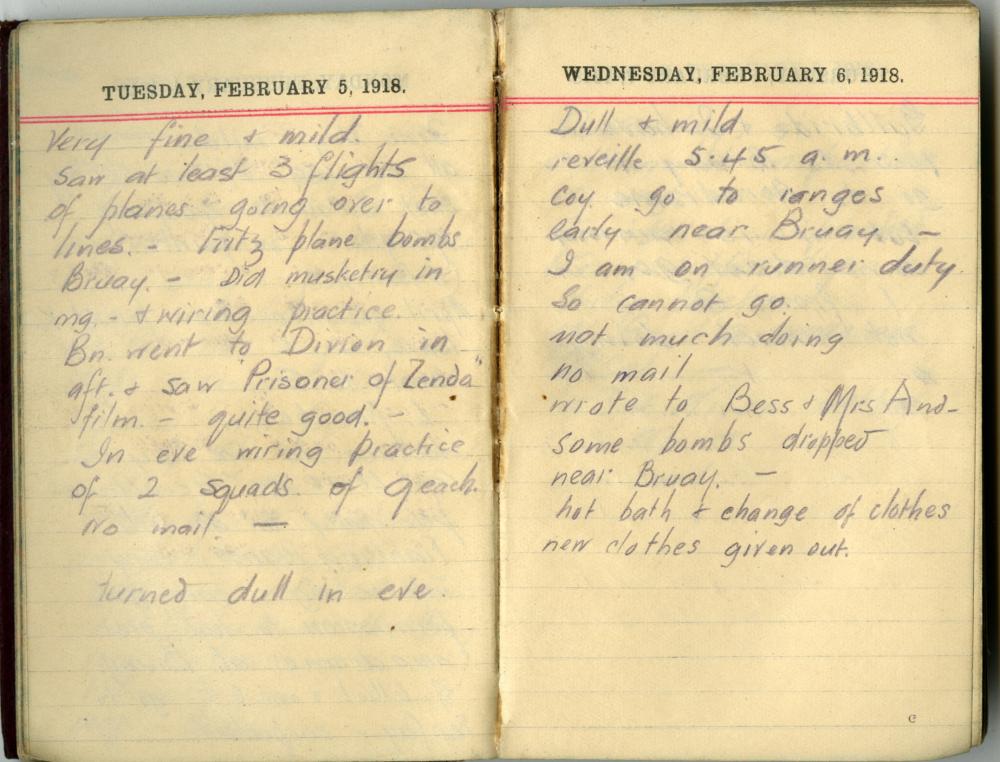 TUESDAY, FEBRUARY 5, 1918.
Very fine & mild.
Saw at least 3 flights
of planes going over to
lines. - Fritz plane bombs
Bruay. - Did musketry in
mg. - & wiring practice.
Bn. went to Divion in
aft. & saw "Prisoner of Zenda"
film. - quite good. -
In eve wiring practice
of 2 squads of 9 each.
No mail. —
turned dull in eve.
WEDNESDAY, FEBRUARY 6, 1918.
Dull & mild
reveille 5.45 a.m..
coy. go to ranges
early near Bruay -
I am on runner duty.
So cannot go.
not much doing
no mail
wrote to Bess & Mrs And-
some bombs dropped
near Bruay. -
hot bath & change of clothes
new clothes given out.
C